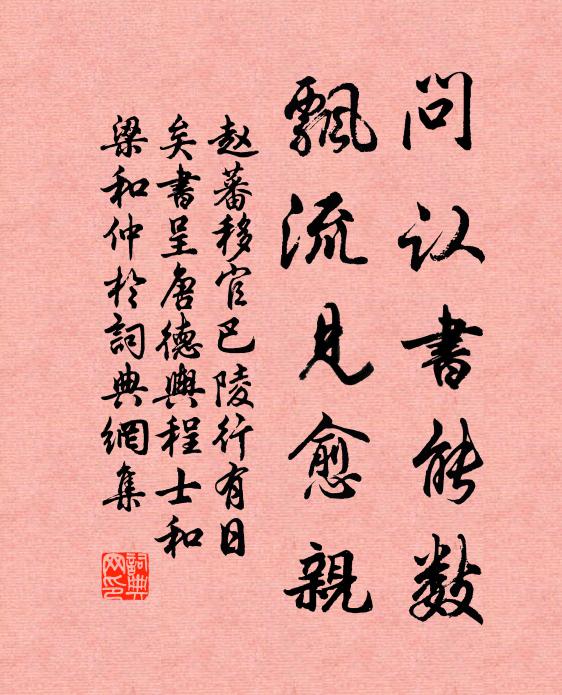 问认書能数
飘流見愈親
赵蕃移官巴陵行有日
矣書呈唐德興程士和
梁和仲於詞典網集
詞典
网印